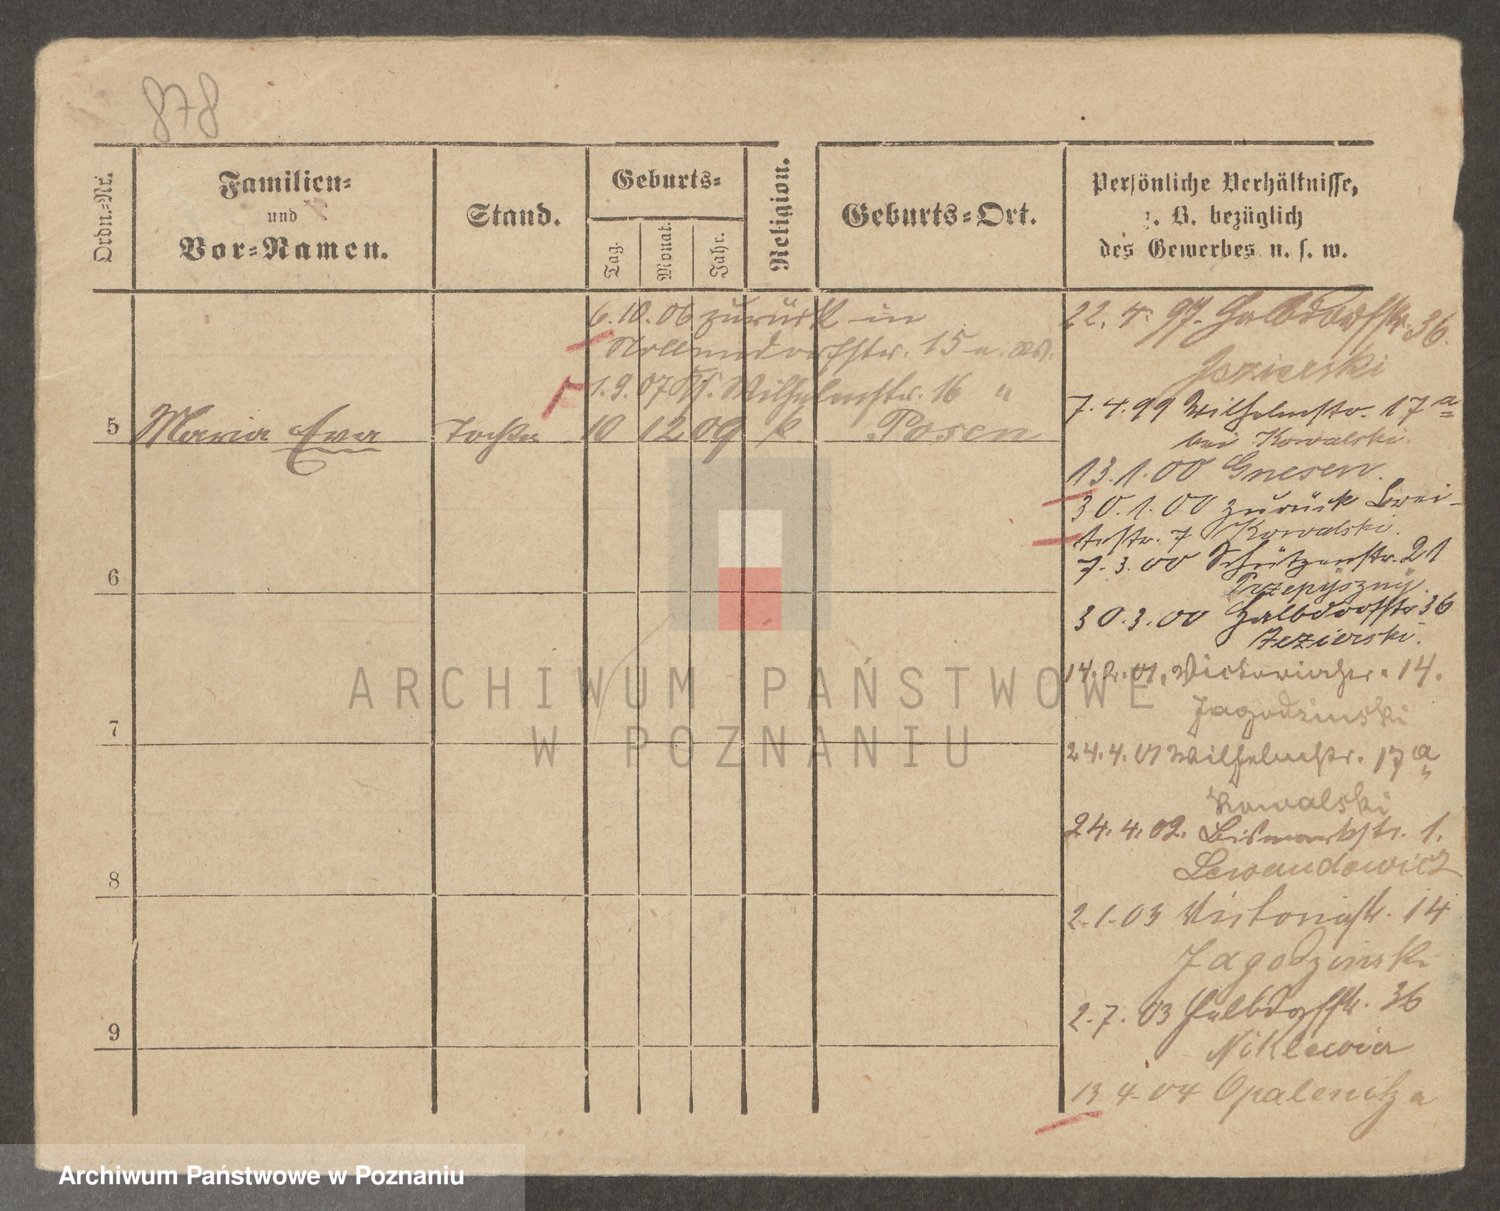 878
Ordn.-Nr.
Familien-
und
Vor-Namen.
Stand.
Geburts-
Tag.
Monat.
Jahr.
Religion.
Geburts-Ort.
Persönliche Verhältnisse,
z. B. bezüglich
des Gewerbes u. s. w.
6.10.06 zurück in
Nollendorfstr. 15
1.9.07 Wilhelmstr. 16 "
5 Maria Eva Tochter 10 12 09 k Posen
6
7
8
9
22. 4. 97. Halbdorfstr. 36.
Jezierski
7.4.99 Wilhelmstr. 17 a
bei Kowalski.
13.1.00 Gnesen.
30.1.00 zurück Brei-
testr. 7 Kowalski.
7.3.00 Schützenstr. 21
Przepyszny.
30.3.00 Halbdorfstr 36
Jezierski.
14.2.01. Victoriastr. 14.
Jagodzinski
24.4.01 Wilhelmstr. 17 a
Kowalski
24.4.02. Bismarkstr. 1.
Lewandowicz
2.1.03 Victoriastr. 14
Jagodzinski
2.7.03 Halbdorfstr. 36
Niklewicz
13.4.04 Opalenitza
ARCHIWUM PAŃSTWOWE
W POZNANIU
Archiwum Państwowe w Poznaniu